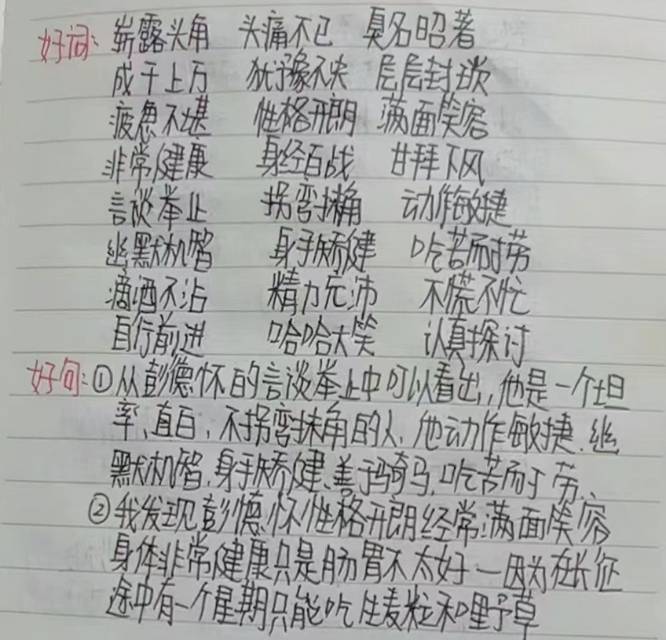 好词: 崭露头角 头痛不已 臭名昭著
成千上万 犹豫不决 层层封锁
疲惫不堪 性格开朗 满面笑容
非常健康 身经百战 甘拜下风
言谈举止 拐弯抹角 动作敏捷
幽默机智 身手矫健 吃苦耐劳
滴酒不沾 精力充沛 不慌不忙
自行前进 哈哈大笑 认真探讨
好句:①从彭德怀的言谈举止中可以看出,他是一个坦
率、直白,不拐弯抹角的人,他动作敏捷、幽
默机智,身手矫健、善于骑马,吃苦而于劳、
②我发现彭德怀性格开朗经常满面笑容
身体非常健康只是肠胃不太好一因为在长征
途中有一个星期只能吃生麦粒和野草